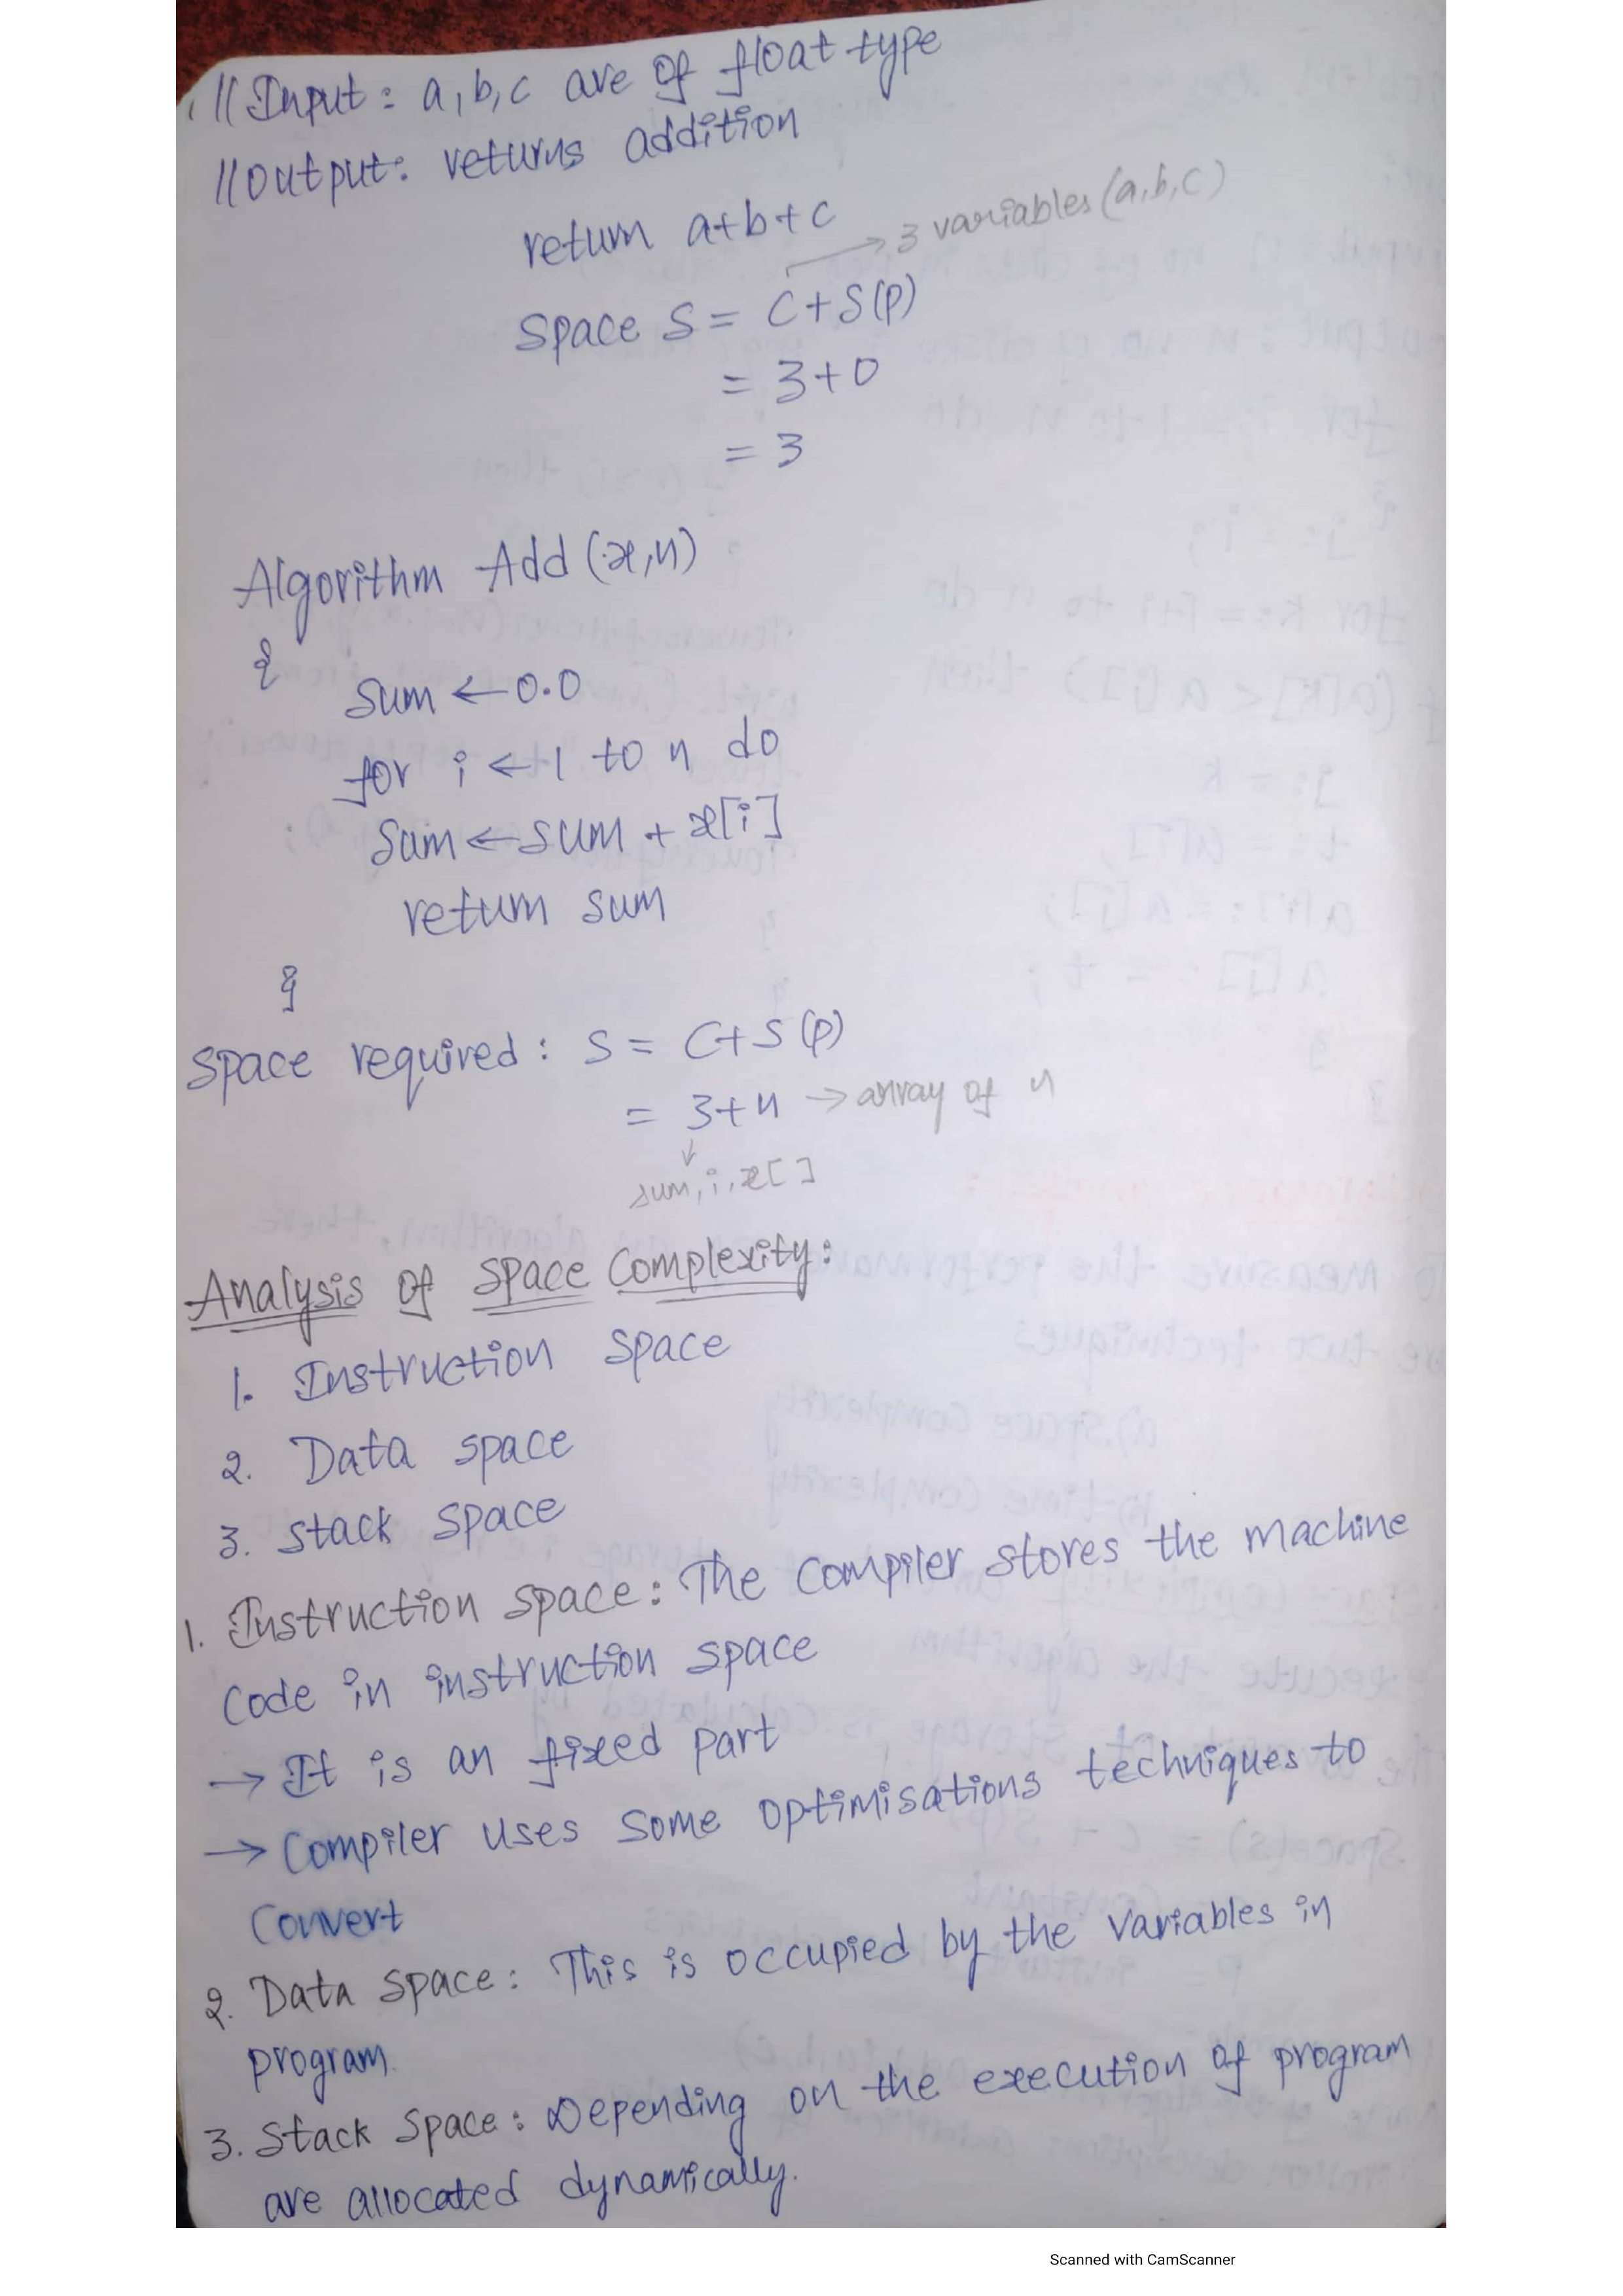 // Input: a,b,c are of float type
// Output: returns addition
return a+b+c
→ 3 variables (a,b,c)
Space S = C+S(P)
= 3+0
= 3
Algorithm Add (x,n)
{
Sum ← 0.0
for i ← 1 to n do
Sum ← sum + x[i]
return sum
}
Space required: S = C+S(P)
= 3+n → array of n
↓
sum, i, x[ ]
Analysis of Space Complexity:
1. Instruction space
2. Data space
3. stack space
1. Instruction space: The compiler stores the machine
code in instruction space
→ It is an fixed part
→ Compiler uses some optimisations techniques to
Convert
2. Data space: This is occupied by the variables in
program.
3. Stack space: Depending on the execution of program
are allocated dynamically.
Scanned with CamScanner